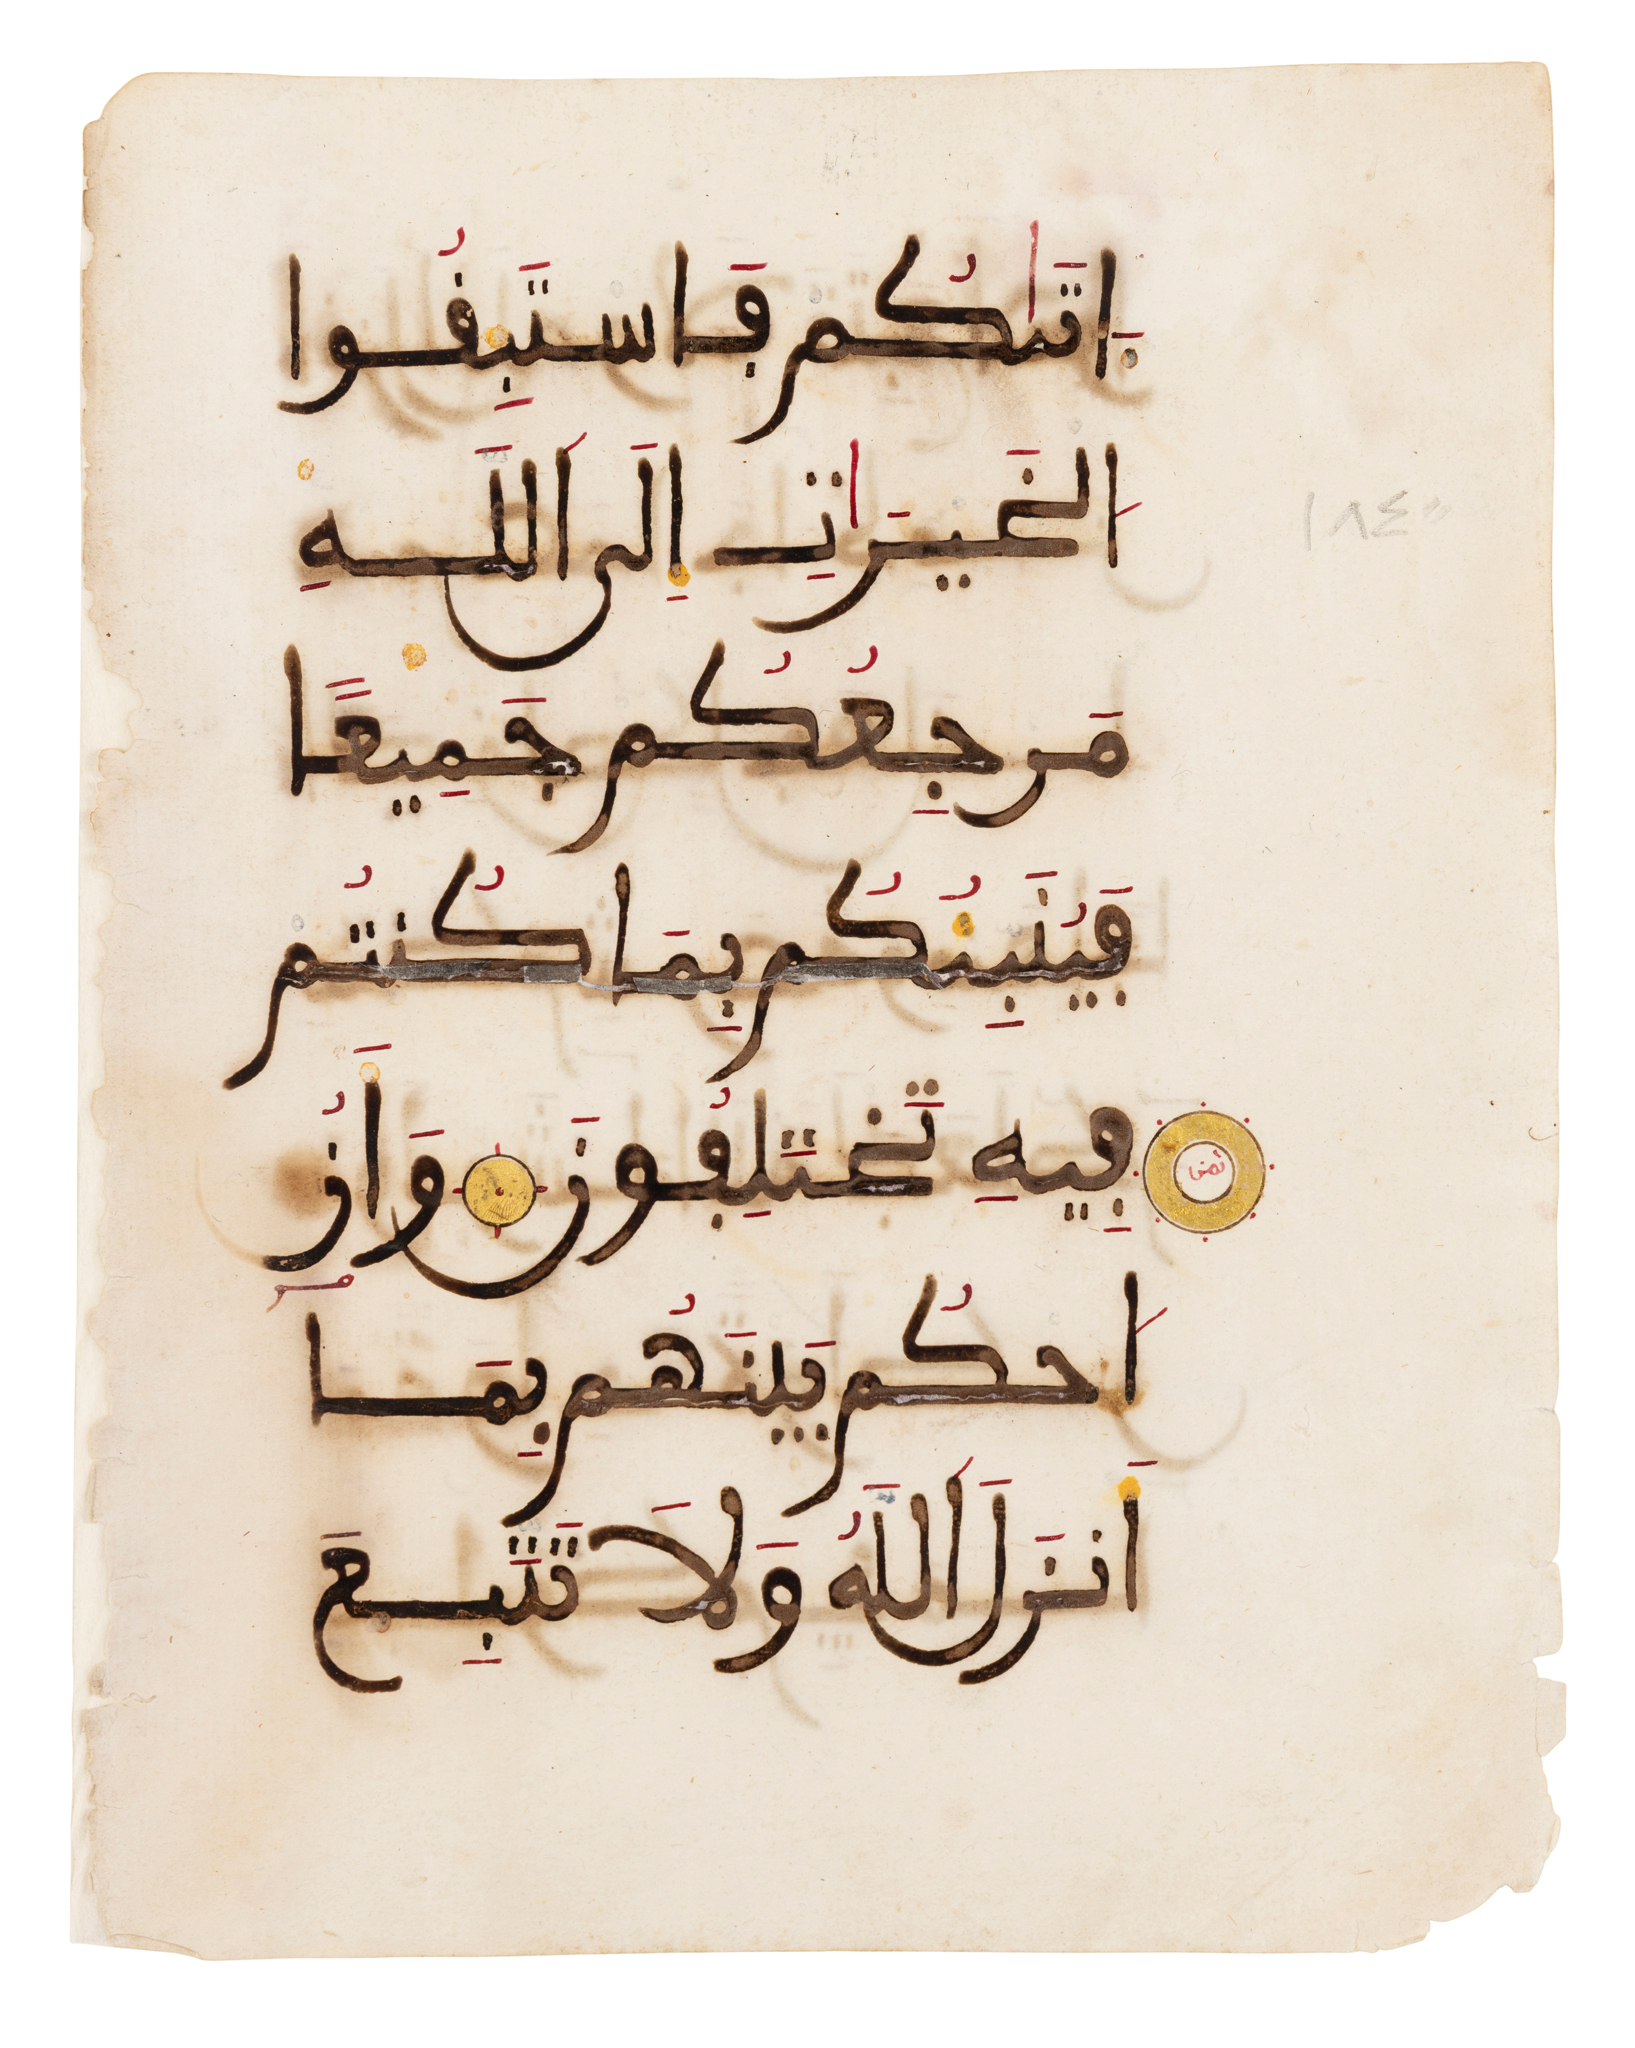 اتىٰكُم فَاسْتَبِقُوا
الخَيرَٰتِ إِلَى اللَّهِ
مَرجِعُكُم جَمِيعًا
فَيُنَبِّئُكُم بِمَا كُنتُم
فِيهِ تَختَلِفُونَ وَأَنُ
احكُم بَينَهُم بِمَا
أَنزَلَ اللَّهُ وَلَا تَتَّبِع
١٨٤